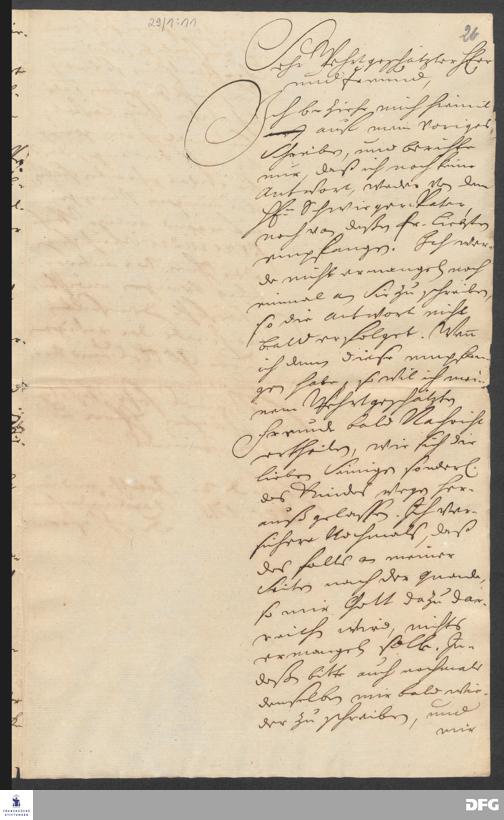 29/1:11
26
Sehr Wehrtgeschätzter Herr
und Freund,
Ich beziehe mich hiemit
auf mein voriges
Schreiben, und berichte
nur, daß ich noch keine
Antwort, weder von dem
Hn Schwieger Vater,
noch von deßen Fr. Liebsten
empfangen. Ich wer-
de nicht ermangeln noch
einmal an Sie zu schreiben,
so die Antwort nicht
bald erfolget. Wenn
ich dann diese empfan-
gen habe, so wil ich mei-
nem Wehrtgeschätzten
Freund bald Nachricht
ertheilen, wie sich die
lieben Seinigen sonderl.
des Kindes wegen her-
auß gelassen. Ich ver-
sichere Nochmals, daß
des falls an meiner
Seiten nach der Gnade,
so mir Gott dazu dar-
reichen wird, nichts
ermangeln solle. In-
deßen bitte auch nochmals
denselben mir bald wie-
der zu schreiben, und
mir
FRANCKESCHE
STIFTUNGEN
DFG